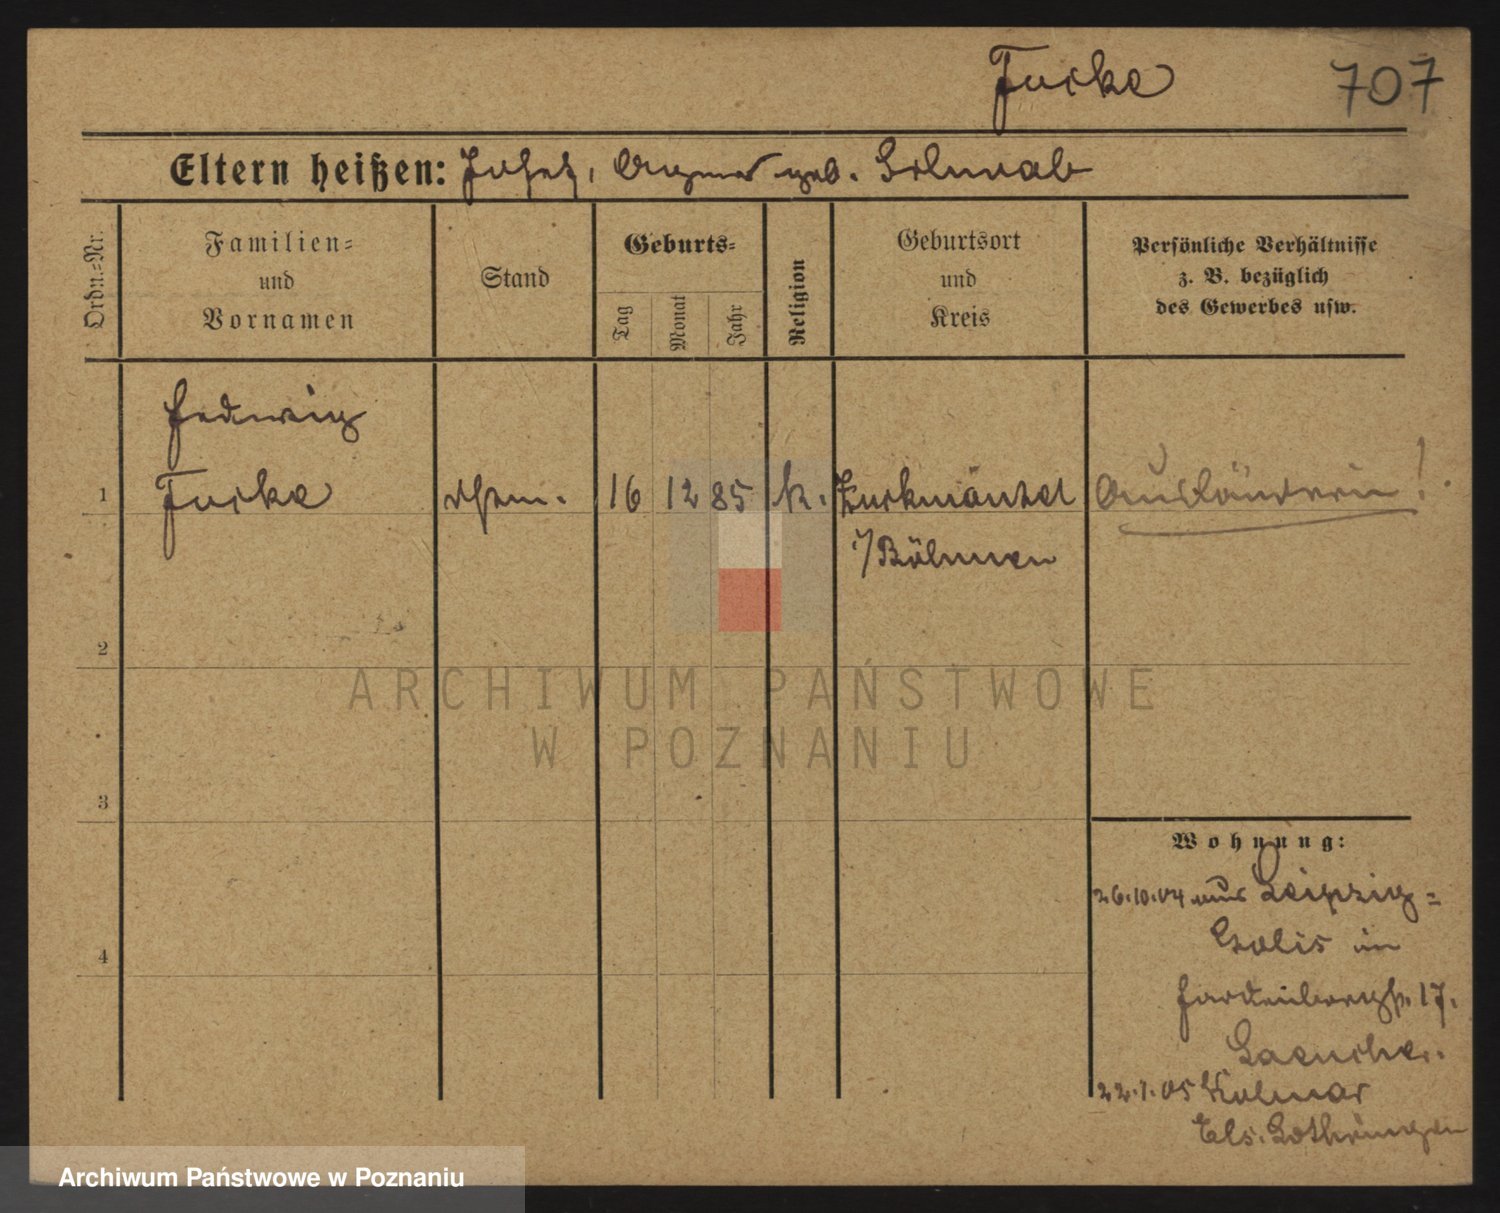 Fucke
707
Eltern heißen: Josef, geb. Schwab
Ordn.-Nr.
Familien-
und
Vornamen
Stand
Geburts-
Tag
Monat
Jahr
Religion
Geburtsort
und
Kreis
Persönliche Verhältnisse
z. B. bezüglich
des Gewerbes usw.
Hedwig
1 Fucke 16 12 85 k. Zuckmantel Ausländerin!
i/Böhmen
2
ARCHIWUM PAŃSTWOWE
W POZNANIU
3
Wohnung:
26.10.04 aus Leipzig=
Golis in
Hardenbergstr. 17.
4
22.1.05 Kolmar
Els. Lothringen
Archiwum Państwowe w Poznaniu